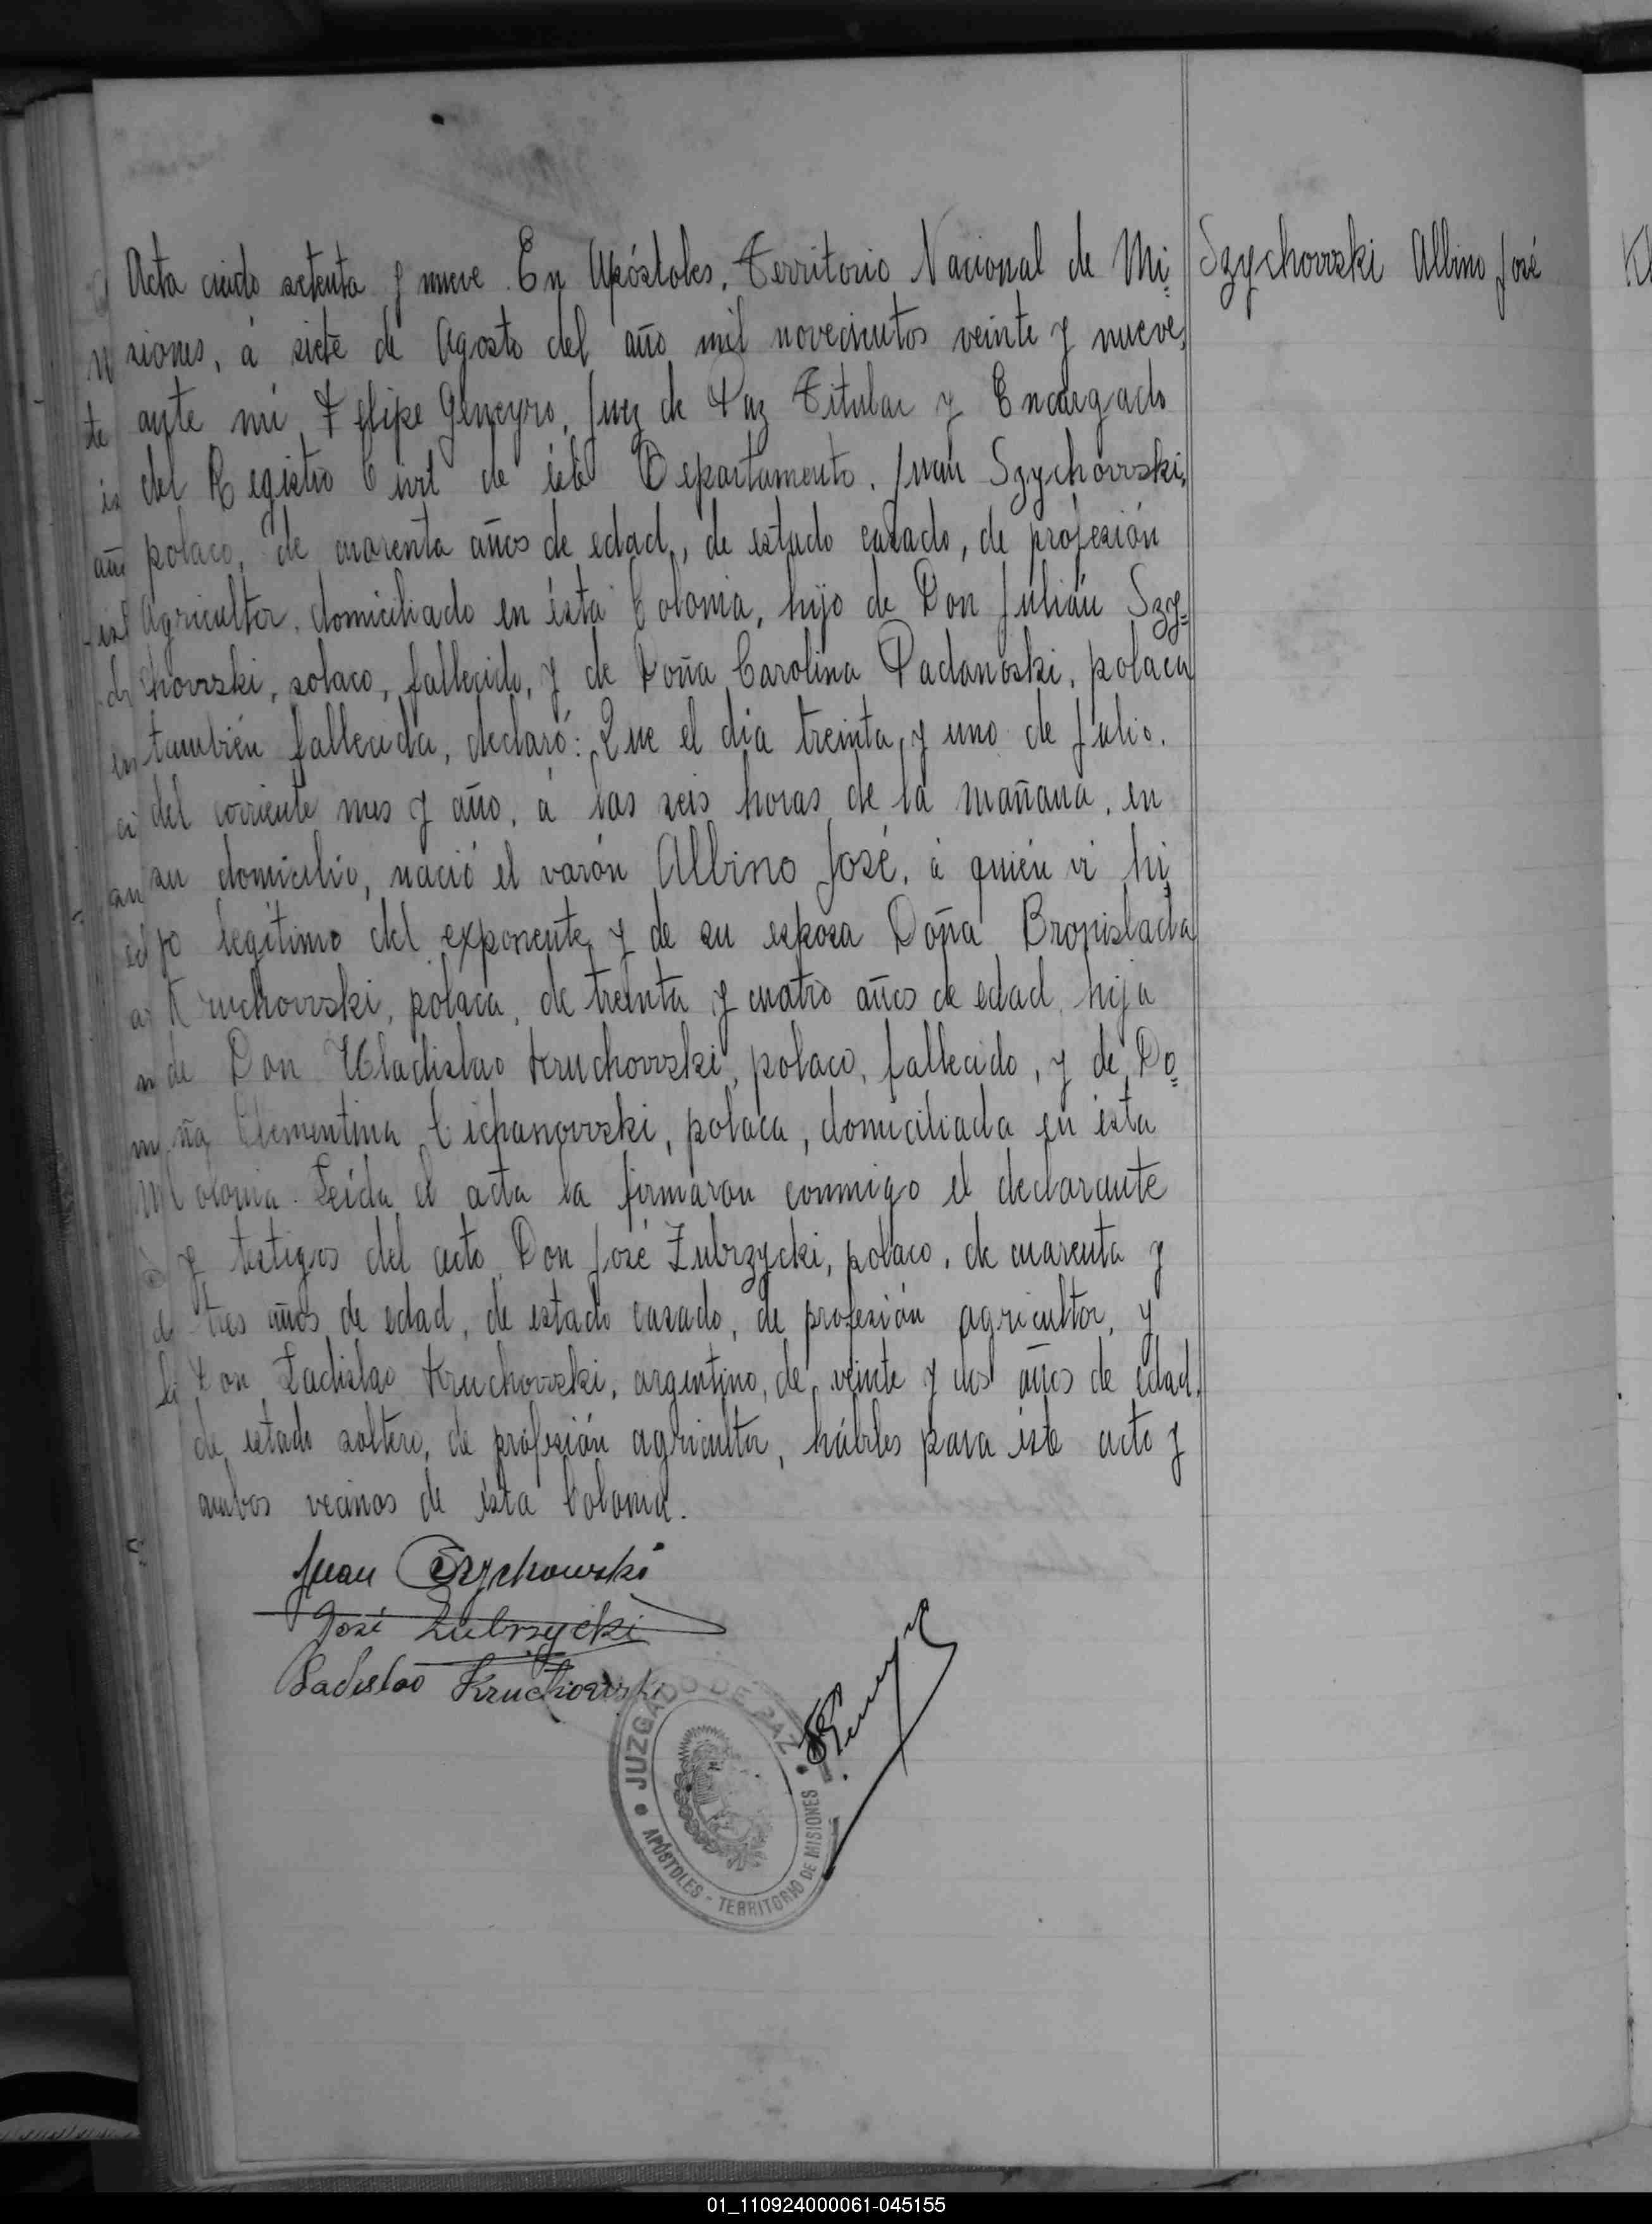 Acta ciento setenta y nueve. En Apóstoles, Territorio Nacional de Mi=
siones, á siete de Agosto del año mil novecientos veinte y nueve,
ante mí Felipe Geneyro, Juez de Paz Titular y Encargado
del Registro Civil de éste Departamento, Juan Szychovvski,
polaco, de cuarenta años de edad, de estado casado, de profesión
agricultor, domiciliado en ésta Colonia, hijo de Don Julián Szy=
chovvski, polaco, fallecido, y de Doña Carolina Padanoski, polaca
también fallecida, declaró: Que el día treinta y uno de Julio,
del corriente mes y año, á las seis horas de la mañana, en
su domicilio, nació el varón Albino José, á quién vi hi
jo legítimo del exponente y de su esposa Doña Bronislada
Kruchovvski, polaca, de treinta y cuatro años de edad, hija
de Don Uladislao Kruchovvski, polaco, fallecido, y de Do=
ña Clementina Cichanovvski, polaca, domiciliada en ésta
Colonia. Leída el acta la firmaron conmigo el declarante
y testigos del acto Don José Zubrzycki, polaco, de cuarenta y
tres años de edad, de estado casado, de profesión agricultor, y
Don Ladislao Kruchovvski, argentino, de veinte y dos años de edad,
de estado soltero, de profesión agricultor, hábiles para éste acto y
ambos vecinos de ésta Colonia.
Szychovvski Albino José
Juan Szychowski
José Zubrzycki
Ladislao Kruchowski
JUZGADO DE PAZ
APÓSTOLES - TERRITORIO DE MISIONES
01_110924000061-045155